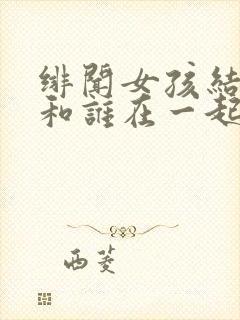 緋聞女孩結
和誰在一起
西菱